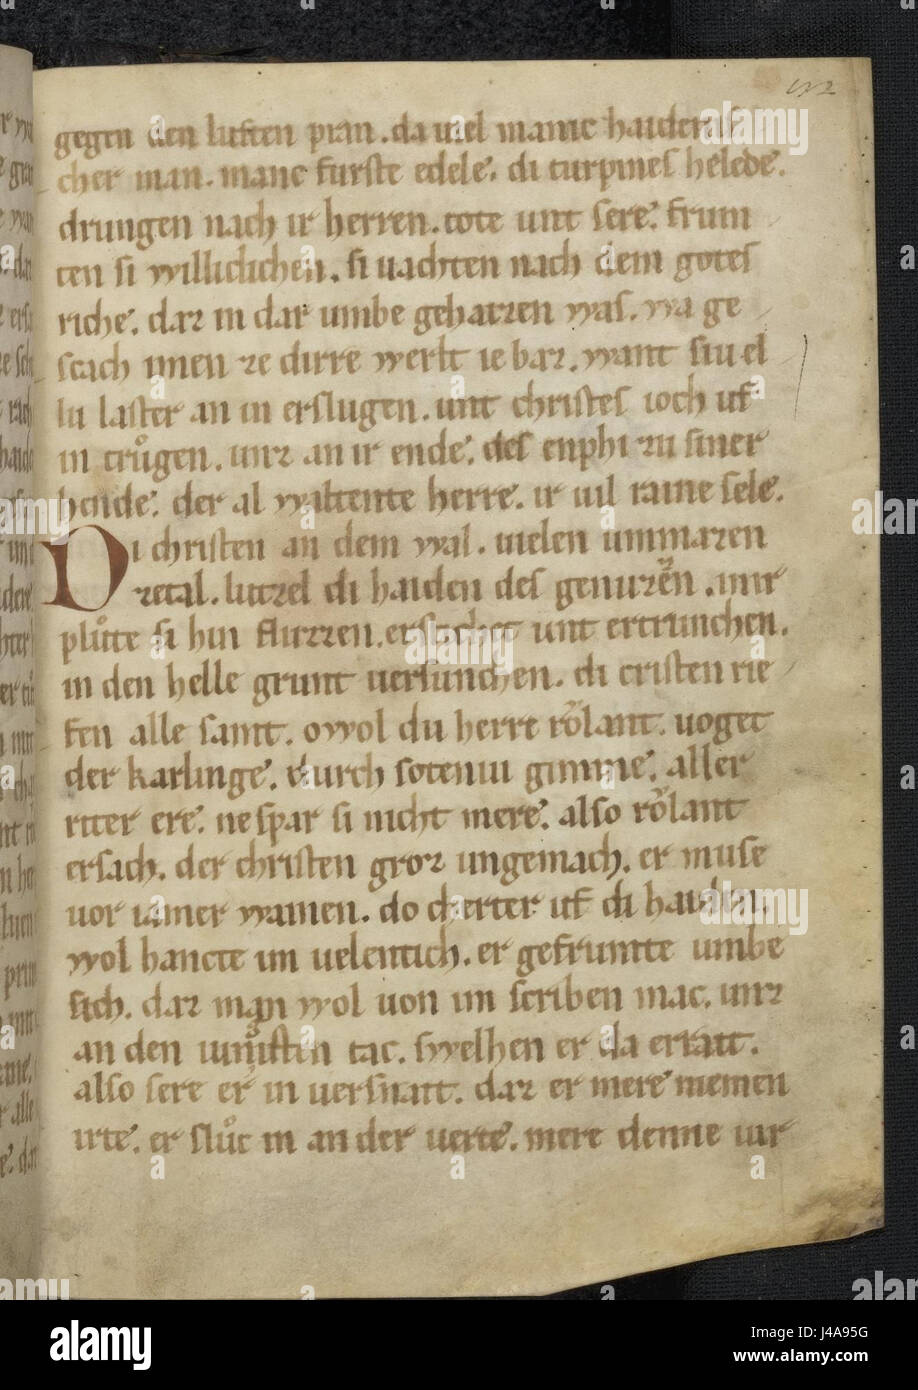 gegen den luften pran . da uiel manic haidenis
cher man . manc furste edele . di turpines helede .
drungen nach ir herren . tote unt sere . frum
ten si willichlichen . si uachten nach dem gotes
riche . daz in dar umbe gehaizzen was . wa ge
scach imen ze dirre werlt ie baz . want siu el
lu laster an in erslugen . unt christes ioch uf
in trůgen . unz an ir ende . des enphi zu siner
hende . der al waltente herre . ir uil raine sele .
Di christen an dem wal . uielen ummazen
zetal . lutzel di haiden des genuzen . mit
plůte si hin fluzzen . ersticket unt ertrunchen .
in den helle grunt uersunchen . di cristen rie
fen alle samt . owol du herre rŏlant . uoget
der karlinge . durch soteniu gimme . aller
riter ere . ne spar si nicht mere . also rŏlant
ersach . der christen groz ungemach . er muse
uor iamer wainen . do cherter uf di haiden .
wol hancte im uelentich . er gefrumte umbe
sich . daz man wol uon im scriben mac . unz
an den iungisten tac . swelhen er da erraitt .
also sere er in uersnaitt . daz er mere niemen
irte . er slůc in an der uerte . mere denne uir
alamy
Image ID: J4A95G
www.alamy.com